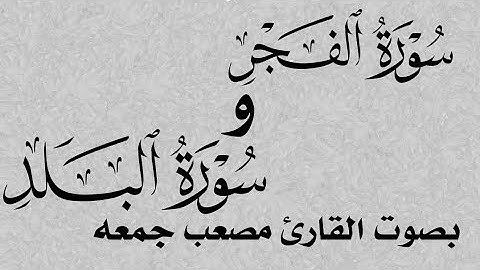 سُورَةُ ٱلفَجْرِ
و
سُورَةُ ٱلبَلَدِ
بصوت القارئ مصعب جمعه